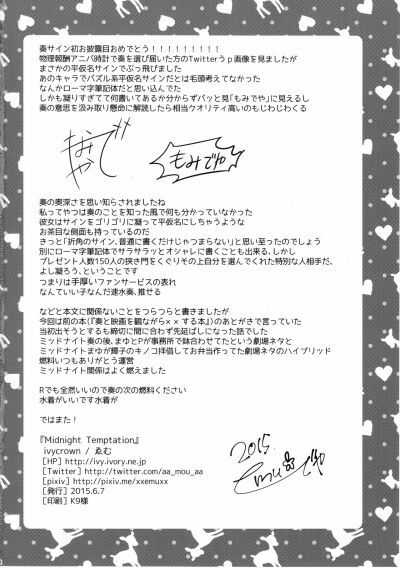 奏サイン初お披露目おめでとう！！！！！！！！！
物理報酬アニバ時計で奏を選び届いた方のTwitterうｐ画像を見ましたが
まさかの平仮名サインでぶっ飛びました
あのキャラでパズル系平仮名サインだとは毛頭考えてなかった
なんかローマ字筆記体だと思い込んでた
しかも凝りすぎてて何書いてあるか分からずパッと見「もみでや」に見えるし
奏の意思を汲み取り懸命に解読したら相当クオリティ高いのもじわじわくる
もみでや
奏の奥深さを思い知らされましたね
私ってやつは奏のことを知った風で何も分かっていなかった
彼女はサインをゴリゴリに凝って平仮名にしちゃうような
お茶目な側面も持っているのだ
きっと「折角のサイン、普通に書くだけじゃつまらない」と思い至ったのでしょう
別にローマ字筆記体でサラサラッとオシャレに書くことも出来る、しかし
プレゼント人数150人の狭き門をくぐりその上自分を選んでくれた特別な人相手だ、
よし凝ろう、ということです
つまりは手厚いファンサービスの表れ
なんていい子なんだ速水奏、推せる
などと本文に関係ないことをつらつらと書きましたが
今回は前の本(『奏と映画を観ながら××する本』)のあとがきで言っていた
当初出そうとするも締切に間に合わず先延ばしになった話でした
ミッドナイト奏の後、まゆとPが事務所で鉢合わせてたという劇場ネタと
ミッドナイトまゆが輝子のキノコ拝借してお弁当作ってた劇場ネタのハイブリッド
燃料いつもありがとう運営
ミッドナイト関係はよく燃えました
Rでも全然いいので奏の次の燃料ください
水着がいいです水着が
ではまた！
『Midnight Temptation』
ivycrown / ゑむ
[HP] http://ivy.ivory.ne.jp
[Twitter] http://twitter.com/aa_mou_aa
[pixiv] http://pixiv.me/xxemuxx
[発行] 2015.6.7
[印刷] K9様
2015.
emu